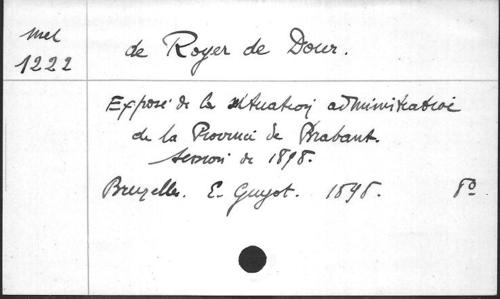 Mel
1222
de Royer de Dour.
Exposé de la situation administrative
de la Province de Brabant.
Session de 1898.
Bruxelles. E. Guyot. 1898. 8°